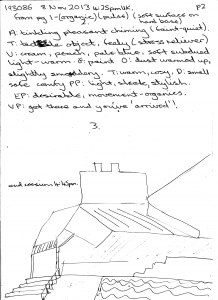 193086 8 Nov 2013 P2
from pg 1 - (organic) (pulse) (soft surface on hard base)
A: building pleasant chiming (faint-quiet).
T: object, feely (stress reliever)
V: cream, peach, pale blue, soft subdued
light-warm. G: paint O: dust warmed up,
slightly smoldery. T: warm, cosy. D: small
safe comfy PP: light, sleek, stylish.
EP: desirable, movement-organics.
VP: get there and you've 'arrived'!
3.
end session